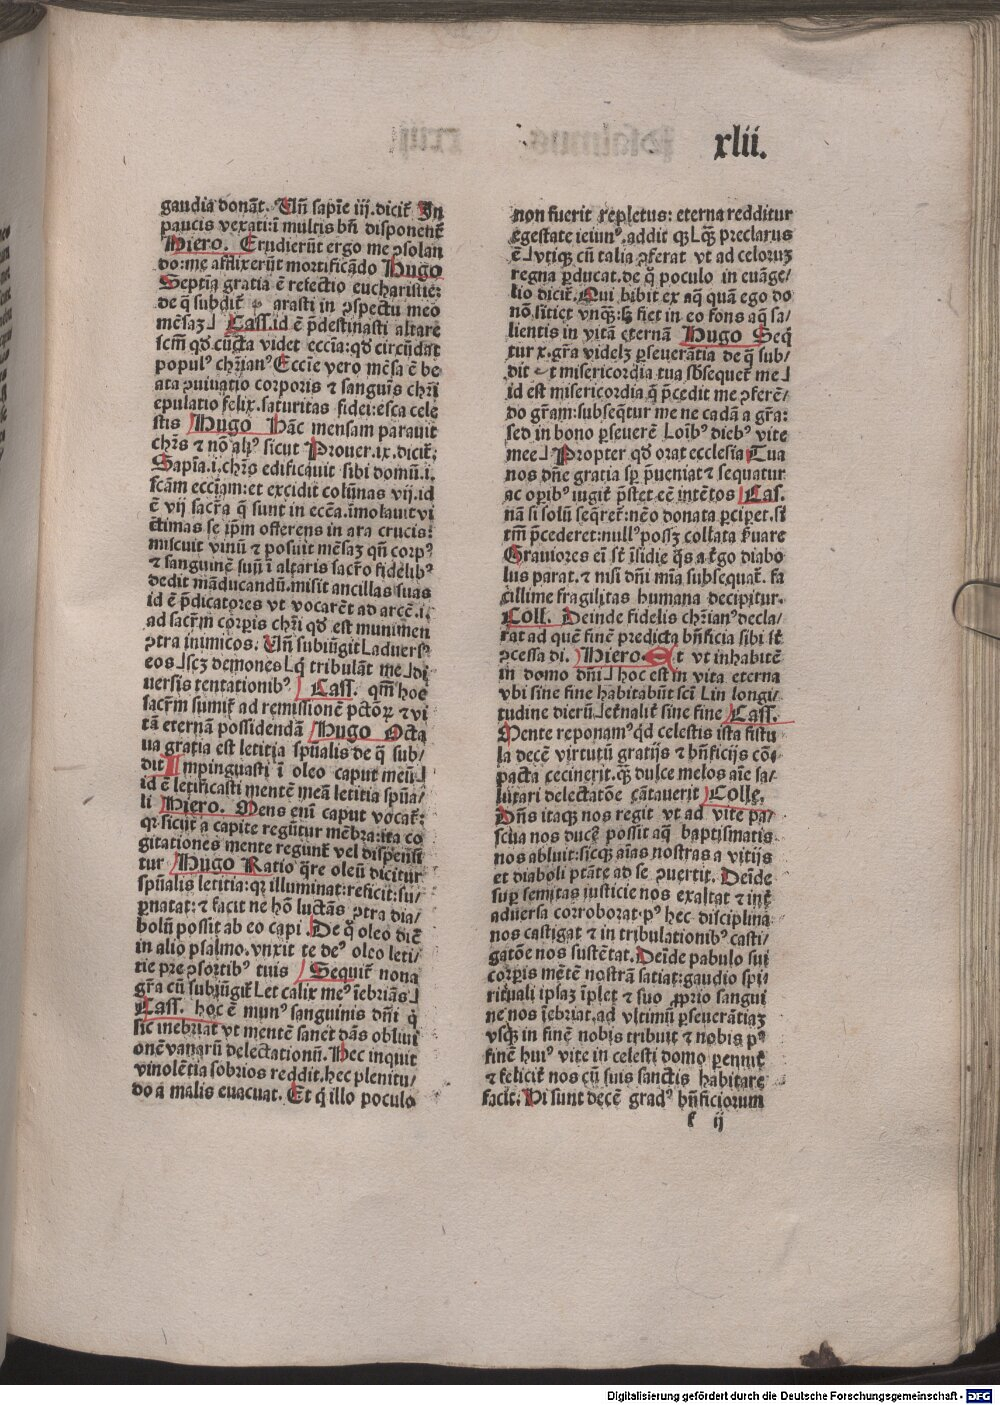 xlii.
gaudia donāt. Uñ sapiē iij. dicit̄ In
paucis vexati: ī multis bñ disponent̄
Hiero. Erudierūt ergo me ꝯsolan
do: me afflixerūt mortificādo Hugo
Septīa gratia ē refectio eucharistie:
de q̄ subdit̄ arasti in ꝯspectu meo
mēsaꝫ⅃ Cass. id ē p̄destinasti altare
scm̄ qd̓ cūcta videt eccīa: qd̓ circūdat
populꝰ chr̄ianꝰ Eccīe vero mēsa ē be
ata ꝯuiuatio corporis ⁊ sanguīs chr̄i
epulatio felix. saturitas fidei: esca cele
stis Hugo Hāc mensam parauit
chr̄s ⁊ nō alꝰ sicut Prouer. ix. dicit̄;
Sapīa .i. chr̄s edificauit sibi domū .i.
scām eccīam: et excidit colūnas vij. id
ē vij sacr̄a q̄ sunt in eccā. īmolauit vi
ctimas se ip̄m offerens in ara crucis:
miscuit vinū ⁊ posuit mēsaꝫ qñ corpꝰ
⁊ sanguinē suū ī altaris sacr̄o fidelibꝰ
dedit māducandū. misit ancillas suas
id ē p̄dicatores vt vocarēt ad arcē .i.
ad sacr̄m corꝑis chr̄i qd̓ est munimen
ꝯtra inimicos. Uñ subiūgit Laduersꝰ
eos⅃scꝫ demones Lq̄ tribulāt me⅃di
uersis tentationibꝰ Cass. qm̄ hoc
sacr̄m sumit̄ ad remissionē pctōꝝ ⁊ vi
tā eternā possidendā Hugo Octa
ua gratia est letitia spūalis de q̄ sub/
dit Impinguasti ī oleo caput meū⅃
id ē letificasti mentē meā letitia spūa/
li Hiero. Mens enī caput vocat̄:
qꝛ sicut a capite regūtur mēbra: ita co
gitationes mente regunt̄ vel dispensā
tur Hugo Ratio q̄re oleū dicitur
spūalis letitia: qꝛ illuminat: reficit: su/
ꝑnatat: ⁊ facit ne hō luctās ꝯtra dia/
bolū possit ab eo capi. De q̄ oleo dic̄
in alio psalmo. vnxit te deꝰ oleo leti/
tie pre ꝯsortibꝰ tuis Sequit̄ nona
gr̄a cū subiūgit̄ Let calix meꝰ īebriās⅃
Cass. hoc ē munꝰ sanguinis dñi q̄
sic inebriat vt mentē sanet dās obliui
onē vanarū delectationū. Hec inquit
vinolētia sobrios reddit. hec plenitu/
do a malis euacuat. Et q̄ illo poculo
non fuerit repletus: eterna redditur
egestate ieiunꝰ. addit qꝫ Lqꝫ preclarus
ē⅃vtiqꝫ cū talia ꝯferat vt ad celoruꝫ
regna ꝑducat. de q̄ poculo in euāge/
lio dicit̄. Qui bibit ex aq̄ quā ego do
nō sitiet vnqꝫ: sꝫ fiet in eo fons aq̄ sa/
lientis in vitā eternā Hugo Seq̄
tur x. gr̄a videlꝫ ꝑseuerātia de q̄ sub/
dit t misericordia tua sb̄sequet̄ me⅃
id est misericordia q̄ p̄cedit me ꝯferē/
do gr̄am: subseq̄tur me ne cadā a gr̄a:
sed in bono ꝑseuerē Loīb̄ꝰ diebꝰ vite
mee⅃ Propter qd̓ orat ecclesia Tua
nos dñe gratia sꝑ p̄ueniat ⁊ sequatur
ac oꝑibꝰ iugit̄ p̄stet eē intētos Cas.
nā si solū seq̄ret̄: nēo donata ꝑciꝑet. si
tm̄ p̄cederet: nullꝰ possꝫ collata ẜuare
Grauiores eī st̄ īsidie q̄s a tgo diabo
lus parat. ⁊ nisi dñi mīa subsequat̄. fa
cillime fragilitas humana decipitur.
Coll. Deinde fidelis chr̄ianꝰ decla/
rat ad quē finē predicta bñficia sibi st̄
ꝯcessa di. Hiero. Et vt inhabitē
in domo dñi⅃ hoc est in vita eterna
vbi sine fine habitabūt scī Lin longi/
tudine dierū⅃et̄nalit̄ sine fine Cass.
Mente reponamꝰ qd̓ celestis ista fistu
la decē virtutū gratijs ⁊ bñficijs cō/
pacta cecinerit. qꝫ dulce melos aīe sa/
lutari delectatōe cātauerit Colle.
Dñs itaqꝫ nos regit vt ad vite pa/
scua nos ducē possit aq̄ baptismatis
nos abluit: sicqꝫ aīas nostras a vitijs
et diaboli ptāte ad se ꝯuertit. Deīde
suꝑ semitas iusticie nos exaltat ⁊ int̄
aduersa corroborat. pꝰ hec disciplina
nos castigat ⁊ in tribulationibꝰ casti/
gatōe nos sustētat. Deīde pabulo sui
corꝑis mētē nostrā satiat: gaudio spi/
rituali ipsaꝫ īplet ⁊ suo ꝓprio sangui
ne nos īebriat. ad vltimū ꝑseuerātiaꝫ
vsqꝫ in finē nobis tribuit ⁊ nobis pꝰ
finē huiꝰ vite in celesti domo ꝑennit̄
⁊ felicit̄ nos cū suis sanctis habitare
facit. Hi sunt decē gradꝰ bñficiorum
f ij
Digitalisierung gefördert durch die Deutsche Forschungsgemeinschaft - DFG